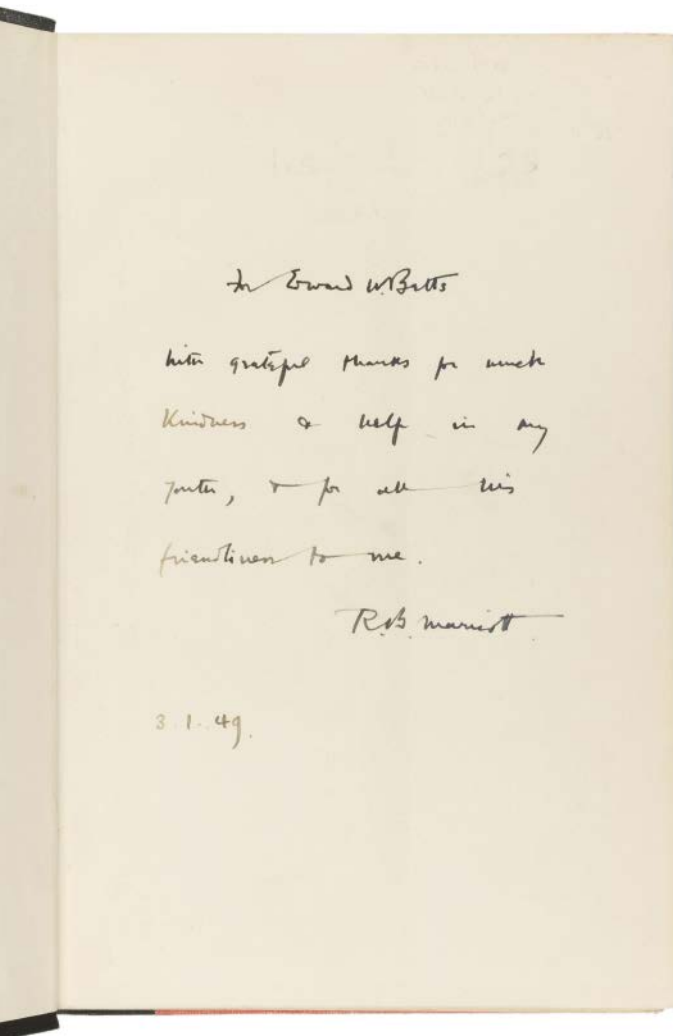 For Edward W. Betts
With grateful thanks for much
Kindness & help in my
youth, & for all his
friendliness to me.
R.B. Marriott.
3.1.49.